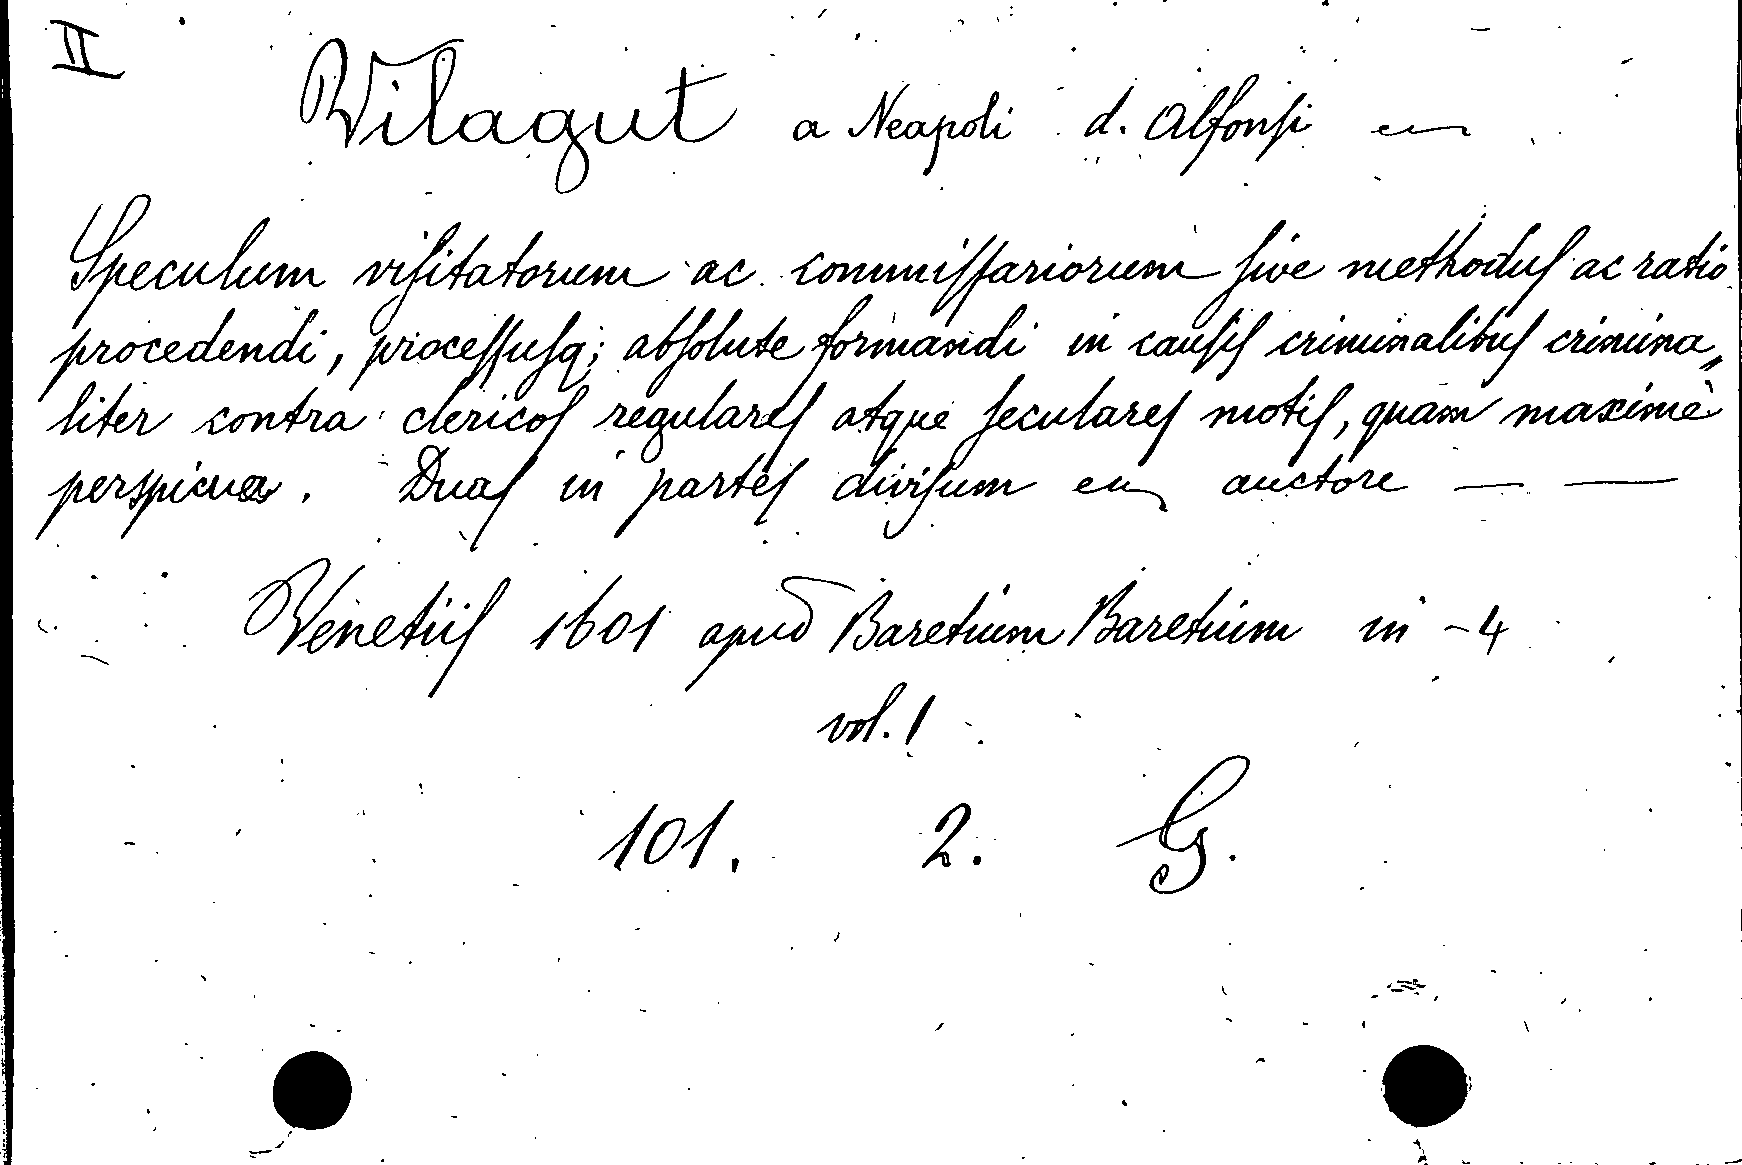 II
Vilagut a Neapoli d. Alfonſi
Speculum viſitatorum ac commiſſariorum ſive methoduſ ac ratio
procedendi, proceſſuſq; abſolute formandi in cauſiſ criminalibuſ crimina„
liter contra clericoſ regulareſ atque ſeculareſ motiſ, quam maximè
perspicua. Duaſ in parteſ diviſum auctore — —
Venetiiſ 1601 apud Baretium Baretium in -4
vol. 1
101. 2. G.